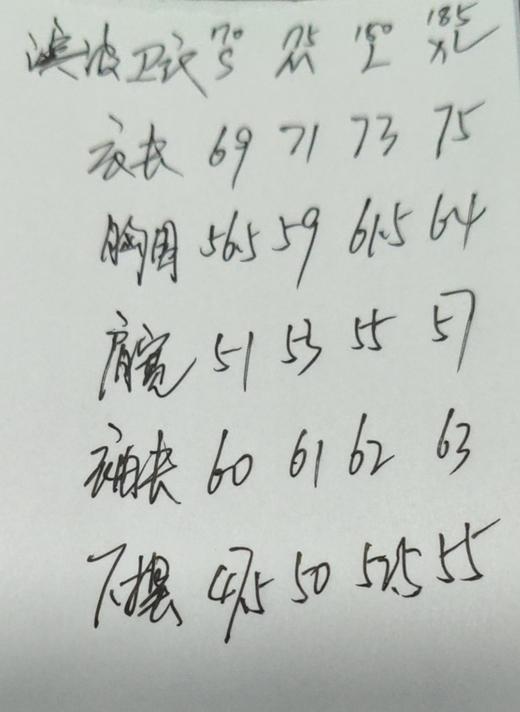 波卫衣 170 S 175 M 180 L 185 XL
衣长 69 71 73 75
胸围 56.5 59 61.5 64
肩宽 51 53 55 57
袖长 60 61 62 63
下摆 47.5 50 52.5 55